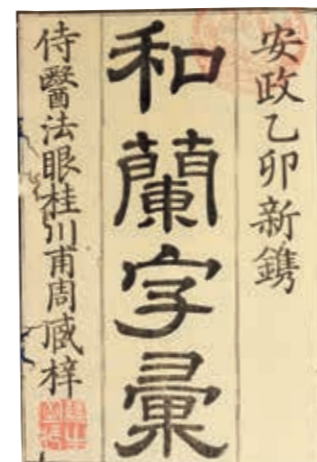 安政乙卯新鐫
和蘭字彙
侍醫法眼桂川甫周臧梓